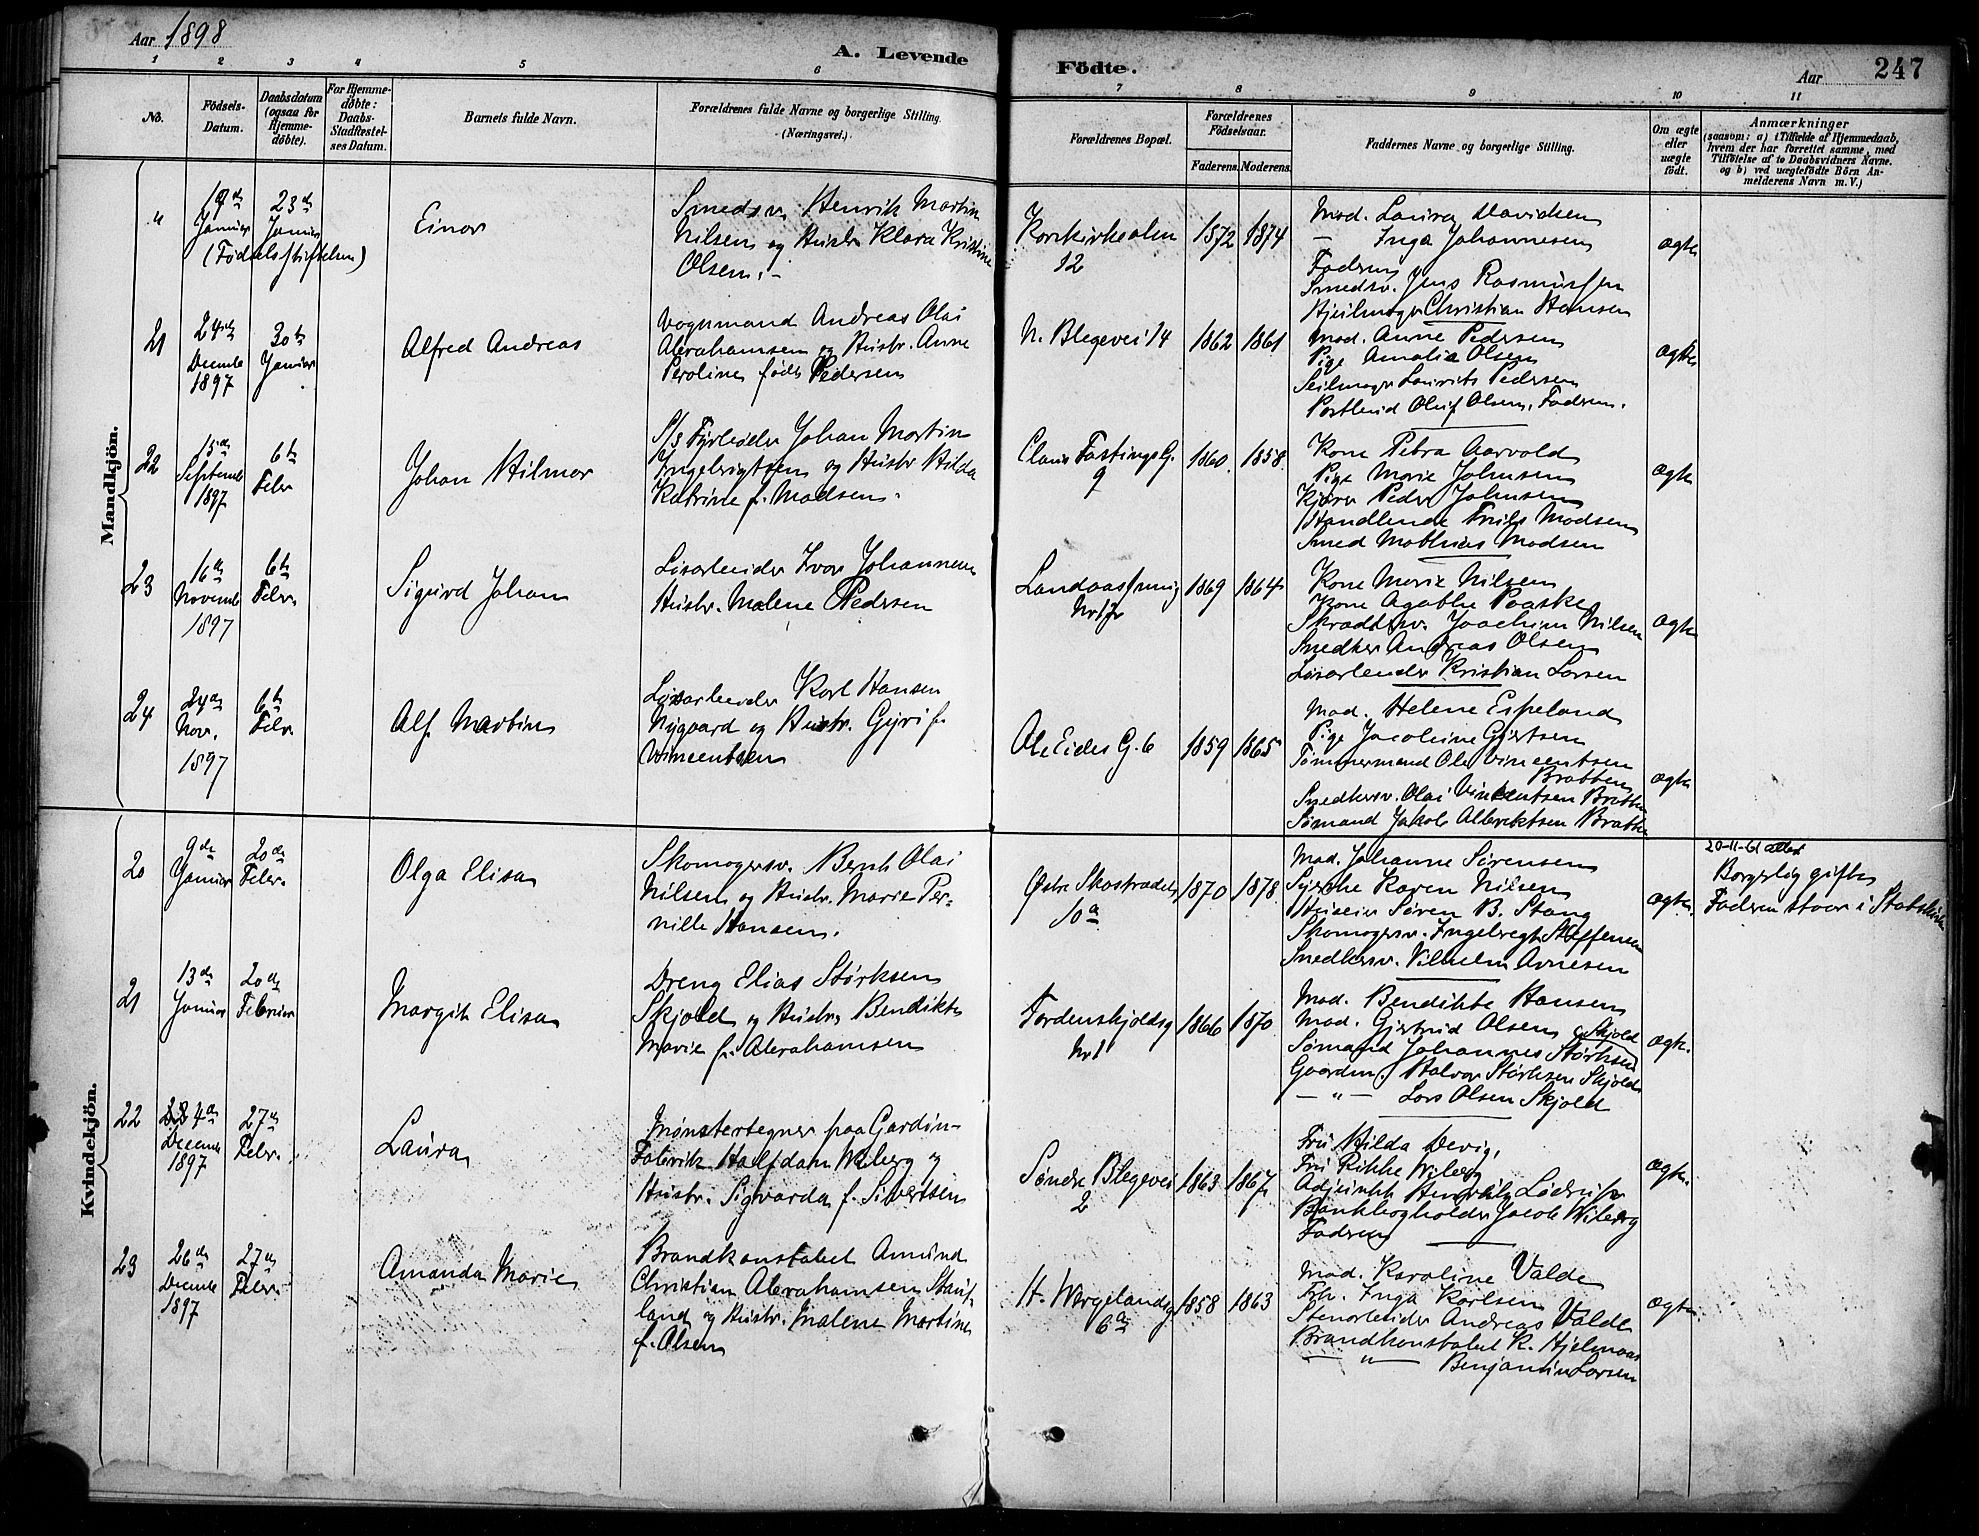 Aar 1898
A. Levende Födte.
Aar
247
1 2 3 4 5 6 7 8 9 10 11
No.
Födsels-Datum.
Daabsdatum (ogsaa for Hjemme-döbte).
For Hjemme-döbte: Daabs-Stadfæstel-ses Datum.
Barnets fulde Navn.
Forældrenes fulde Navne og borgerlige Stilling. (Næringsvei.)
Forældrenes Bopæl.
Forældrenes Födselsaar.
Faderens. Moderens.
Faddernes Navne og borgerlige Stilling.
Om ægte eller uægte födt.
Anmærkninger
(saasom: a) i Tilfælde af Hjemmedaab,
hvem der har forrettet samme, med
Tilföielse af to Daabsvidners Navne.
og b) ved uægtefödte Börn An-
melderens Navn m. V.)
Mandkjön.
" 19de Januar 23de Januar
(Fødselsstiftelsen)
Einar
Smedsv. Henrik Martin
Nilsen og Hustr. Klara Kristine
Olsen.
Korskirkealm
12
1872 1874
Mad. Laura Davidsen
— Inga Johannesen
Faderen
Smedsv. Jens Rasmussen
Christian Hansen
ægte
21
24de Decemb 1897
30te Januar
Alfred Andreas
Vognmand Andreas Olai
Abrahamsen og Hustr. Anne
Peroline født Pedersen
N. Blegevei 14
1862 1861
Mad. Anne Pedersen
Pige Amalia Olsen
Seilmager Laurits Pedersen
Postbud Oluf Olsen, Faderen.
ægte
22
15de Septemb 1897
6te Febr
Johan Hilmar
S/s Fyrbøder Johan Martin
Ingebrigtsen og Hustr Hilda
Katrine f. Madsen.
Claus Fastings G.
9
1860. 1858.
Kone Petra Aarvold
Pige Marie Johnsen
Kjører Peder Johnsen
Handlende Truls Madsen
Smed Mathias Madsen
ægte
23
16de Novemb 1897
6te Febr.
Sigurd Johan
Løsarbeider Ivar Johannesen
Hustr. Malene Pedersen
Landaas
1869 1864
Kone Marie Nilsen
Kone Agathe Paaske
Skrædersv. Joachim Nilsen
Snedker Andreas Olsen
Løsarbeider Kristian Larsen
ægte
24
24de Nov. 1897
6te Febr.
Alf Martin
Løsarbeider Karl Hansen
Nygaard og Hustr. Gyri f.
Vincentsen
Ole Eides G. 6
1859 1865
Mad. Helene Espeland
Pige Jacobine Gjertsen
Tømmermand Ole Vincentsen
Bratten
Snedkersv. Olai Vincentsen Bratten
Sømand Jakob Albriktsen Bratten
ægte
Kvindekjön.
20
9de Januar
20de Febr.
Olga Elisa
Skomagersv. Bernt Olai
Nilsen og Hustr. Marie Per-
nille Hansen.
Østre Skostrædet
10a
1870 1878.
Mad. Johanne Sørensen
Syerske Karen Nilsen
Huseier Søren B. Stang
Skomagersv. Ingebregt Steffensen
Snedkersv. Vilhelm Arnesen
ægte.
20-11-61 attest
Borgerlig gifte
Faderen staar i Statskirken
21
13de Januar
20de Februar
Margit Elisa
Dreng Elias Størksen
Skjold og Hustru Bendikte
Marie f. Abrahamsen
Tordenskjoldsg
Nr 1
1866 1870.
Mad. Bendikte Hansen
Mad. Gjertrud Olsen
Sømand Johannes Størksen Skjold
Gaardm. Halvor Størksen Skjold
— " — Lars Olsen Skjold
ægte.
22
4de Decemb 1897
27de Febr.
Laura
Mønstertegner paa Gardin-
Fabrik Halfdan Wiberg og
Hustr. Sigvarda f. Sivertsen
Søndre Blegevei
2
1863 1867
Fru Hilda Devig,
Fru Rikke Wiberg
Adjunkt Henrik
Bankbogholder Jacob Wiberg
Faderen
ægte.
23
26de Decemb 1897
27de Febr.
Amanda Marie
Brandkonstabel Amund
Christian Abrahamsen Staus-
land og Hustr. Malene Martine
f. Olsen
H. Wergelandsg
6a
1858 1863
Mad. Karoline Valde
Frk. Inga Karlsen
Stenarbeider Andreas Valde
Brandkonstabel K. Hjelmaas
— " — Benjamin Larsen
ægte.